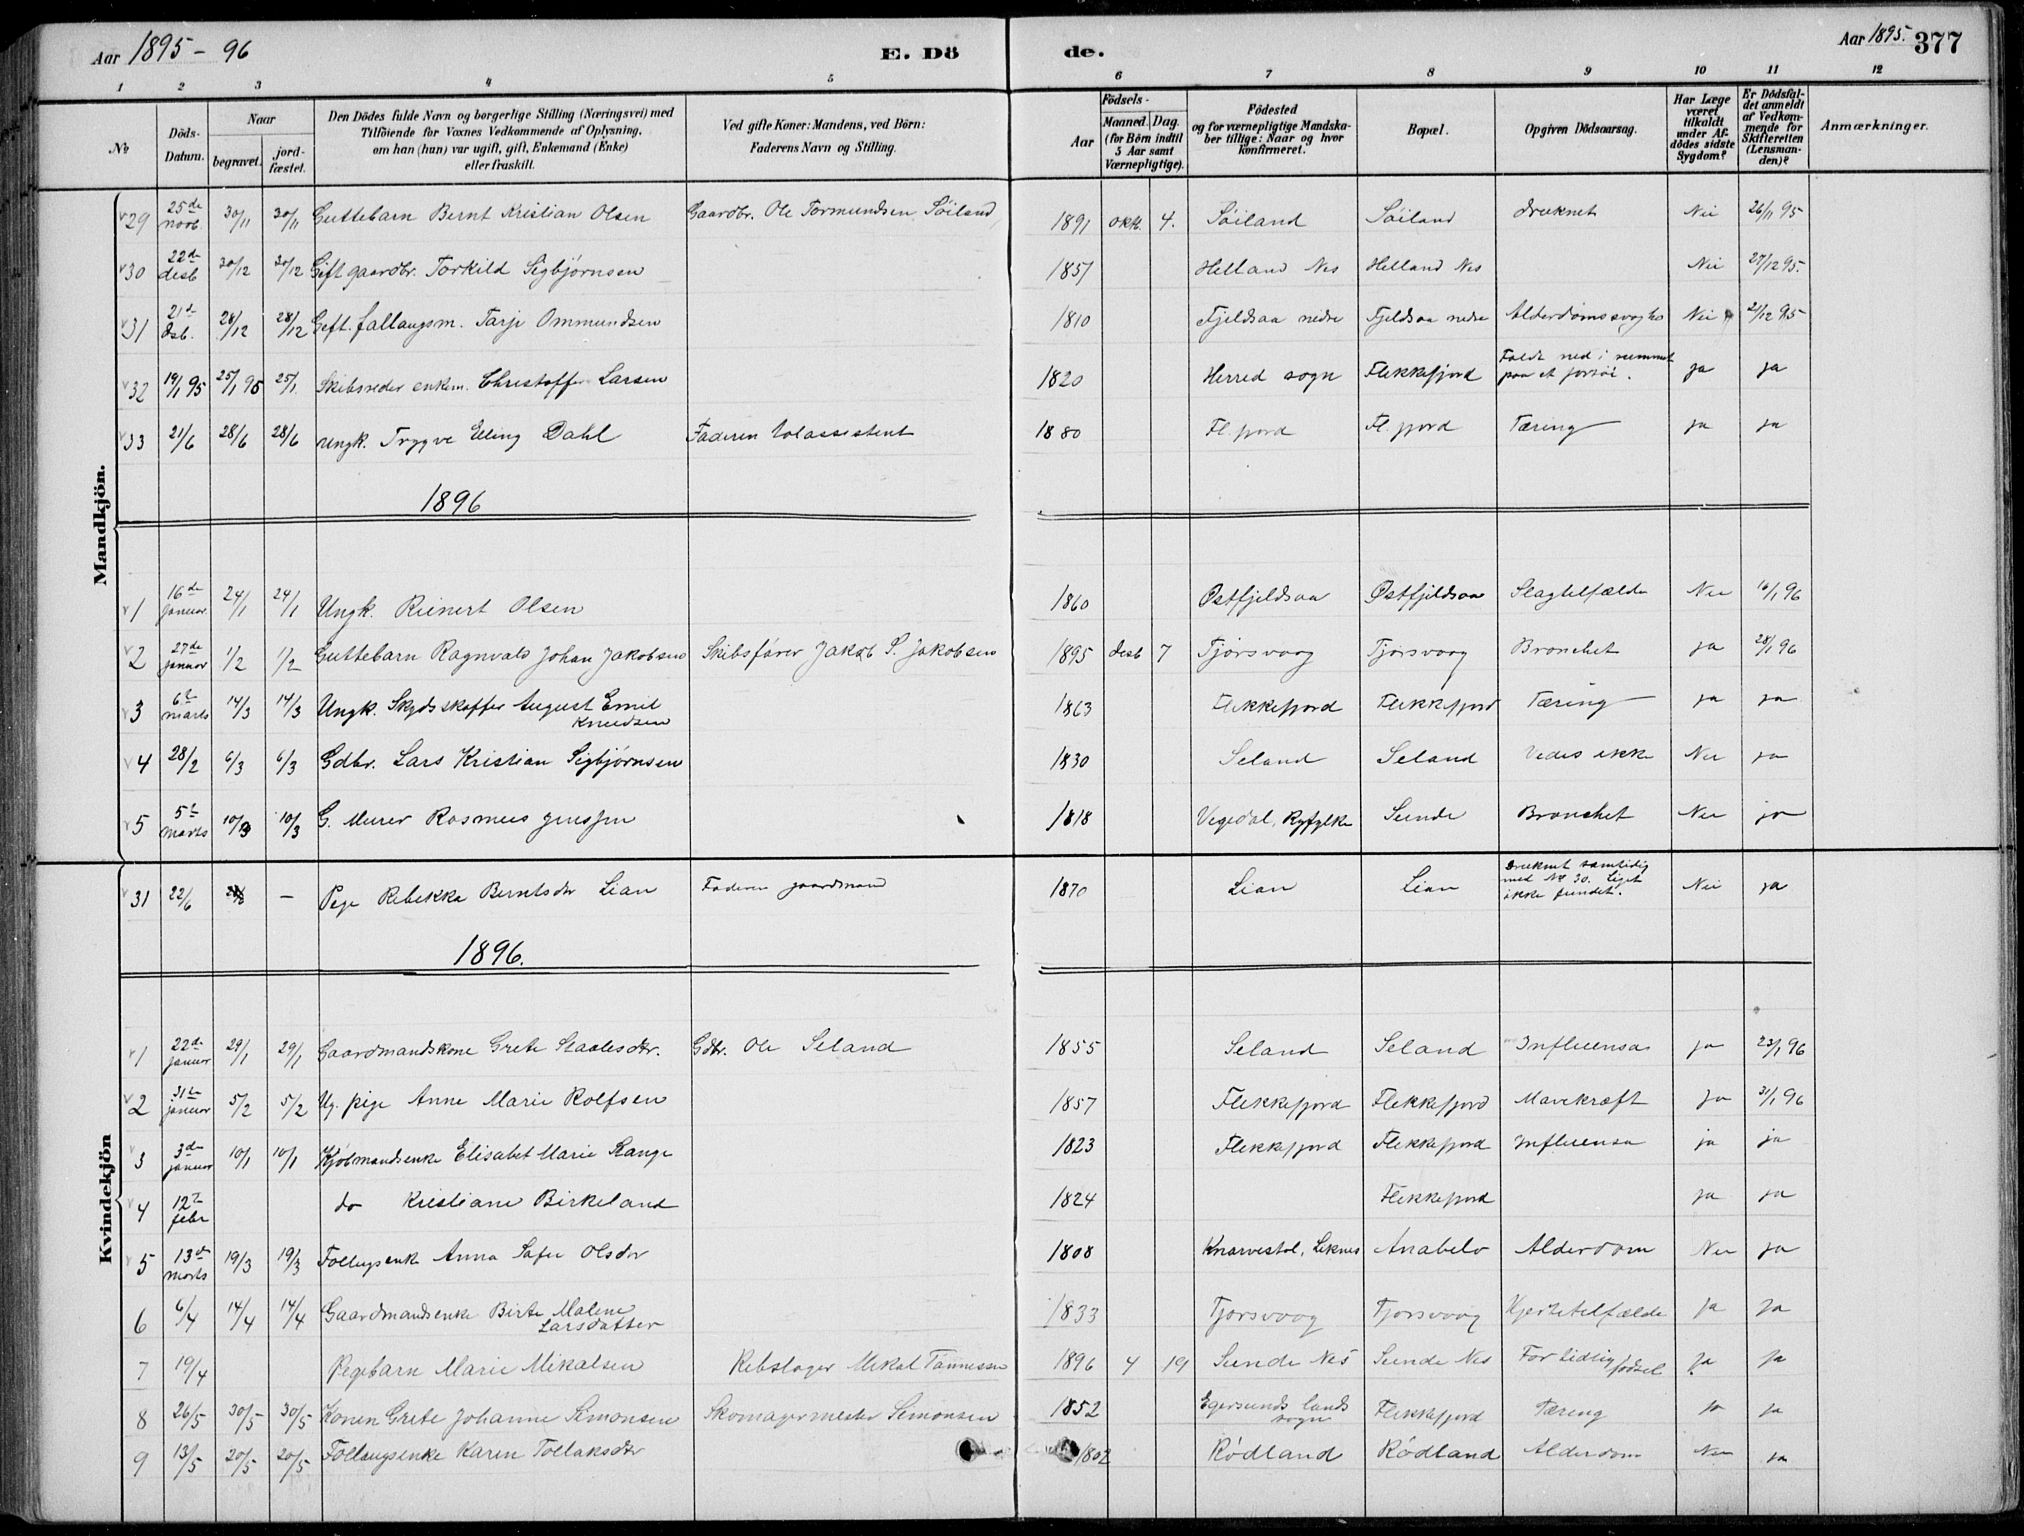 Aar 1895 - 96 E. Dö de. Aar 1895. 377
1 2 3 4 5 6 7 8 9 10 11 12
No Döds-Datum. Naar begravet. jordfæstet. Den Dödes fulde Navn og borgerlige Stilling (Næringsvei) med Tilföiende for Voxnes Vedkommende af Oplysning, om han (hun) var ugift, gift, Enkemand (Enke) eller fraskilt. Ved gifte Koner: Mandens, ved Börn: Faderens Navn og Stilling. Födsels- Aar Maaned. Dag. (for Börn indtil 5 Aar samt Værnepligtige). Födested og for værnepligtige Mandskaber tillige: Naar og hvor konfirmeret. Bopæl. Opgiven Dödsaarsag. Har Læge været tilkaldt under Afdödes sidste Sygdom? Er Dödsfaldet anmeldt af Vedkommende for Skifteretten (Lensmanden)? Anmærkninger.
Mandkjön.
29 25de novb. 30/11 30/11 Guttebarn Bernt Kristian Olsen Gaardbr. Ole Tormundsen Søiland 1891 okt. 4. Søiland Søiland druknet Nei 26/11 95
30 22de desb 30/12 30/12 Gift gaardbr. Torkild Sigbjørnsen 1857 Helland Nes Helland Nes Nei 27/12 95.
31 21de dsb. 28/12 28/12 Gift. fallaugsm. Tarje Ommundsen 1810 Fjeldsaa nedre Fjeldsaa nedre Alderdomssvaghed Nei 21/12 95
32 19/1 95 25/1 95 25/1. Skibsreder enkm. Christoffer Larsen 1820 Herred sogn Flekkefjord Faldt ned i rummet paa et fartøi. ja ja
33 21/6 28/6 28/6 Ungk. Trygve Elling Dahl Faderen tolassistent 1880 Fl.fjord Fl.fjord Tæring ja ja
1896
1 16de januar 24/1 24/1 Ungk. Reinert Olsen 1860 Østfjeldsaa Østfjeldsaa Slagtilfælde Nei 16/1 96
2 27de januar 1/2 1/2 Guttebarn Ragnvald Johan Jakobsen Skibsfører Jakob S. Jakobsen 1895 desb 7 Tjørsvaag Tjørsvaag Bronchit ja 28/1 96
3 6te marts 14/3 14/3 Ungk. Skydsskaffer August Emil Knudsen 1863 Flekkefjord Flekkefjord Tæring ja ja
4 28/2 6/3 6/3 Gdbr. Lars Kristian Sigbjørnsen 1830 Seland Seland Vedes ikke Nei ja
5 5te marts 10/3 10/3 G. Murer Rasmus Jenssen 1818 Vegedal, Ryfylke Sunde Bronchit Nei ja
31 22/6 — Pige Rebekka Berntsdtr Lian Faderen gaardmand 1870 Lian Lian Druknet samtidig med No 30. Liget ikke fundet. Nei ja
1896.
Kvindekjön
1 22de januar 29/1 29/1 Gaardmandskone Grete Staalesdtr. Gdbr. Ole Seland 1855 Seland Seland Influensa ja 23/1 96
2 31te januar 5/2 5/2 Ug. pige Anne Marie Rolfsen 1857 Flekkefjord Flekkefjord Mavekræft ja 31/1 96
3 3de januar 10/1 10/1 Kjøbmandsenke Elisabet Marie Stange 1823 Flekkefjord Flekkefjord Influensa ja ja
4 12te febr do Kristiane Birkeland 1824 Flekkefjord ja ja
5 13de marts 19/3 19/3 Follugsenke Anna Sofie Olsdtr 1808 Knarvestøl, Liknes Anabeló Alderdom Nei ja
6 6/4 14/4 14/4 Gaardmandsenke Birte Malene Larsdatter 1833 Tjorsvaag Tjorsvaag Hjertetilfælde ja ja
7 19/4 Pigebarn Marie Mikalsen Rebslager Mikal Tønnessen 1896 4 19 Sunde Nes Sunde Nes For tidlig fødsel ja ja
8 26/5 30/5 30/5 Konen Grete Johanne Simonsen Skomagermester Simonsen 1852 Egersunds lands sogn Flekkefjord Tæring ja ja
9 13/5 20/5 20/5 Follaugsenke Karen Tollaksdtr 1802 Rødland Rødland Alderdom Nei ja